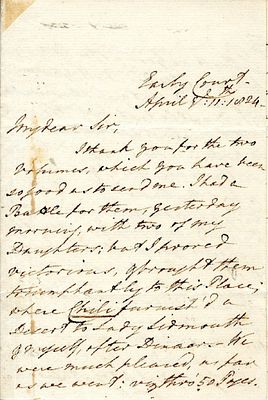 Early Court.
April 8th: 11: 1824.
My dear Sir,
I thank you for the two
volumes, which you have been
so good as to send me. I had a
Battle for them, yesterday
morning, with two of my
Daughters; but I proved
victorious, & brought them
triumphantly to this Place;
where Chili furnish'd a
Desert to Lady Sidmouth
& myself, after Dinner — We
were much pleased, as far
as we went: viz thro' 50 Pages.